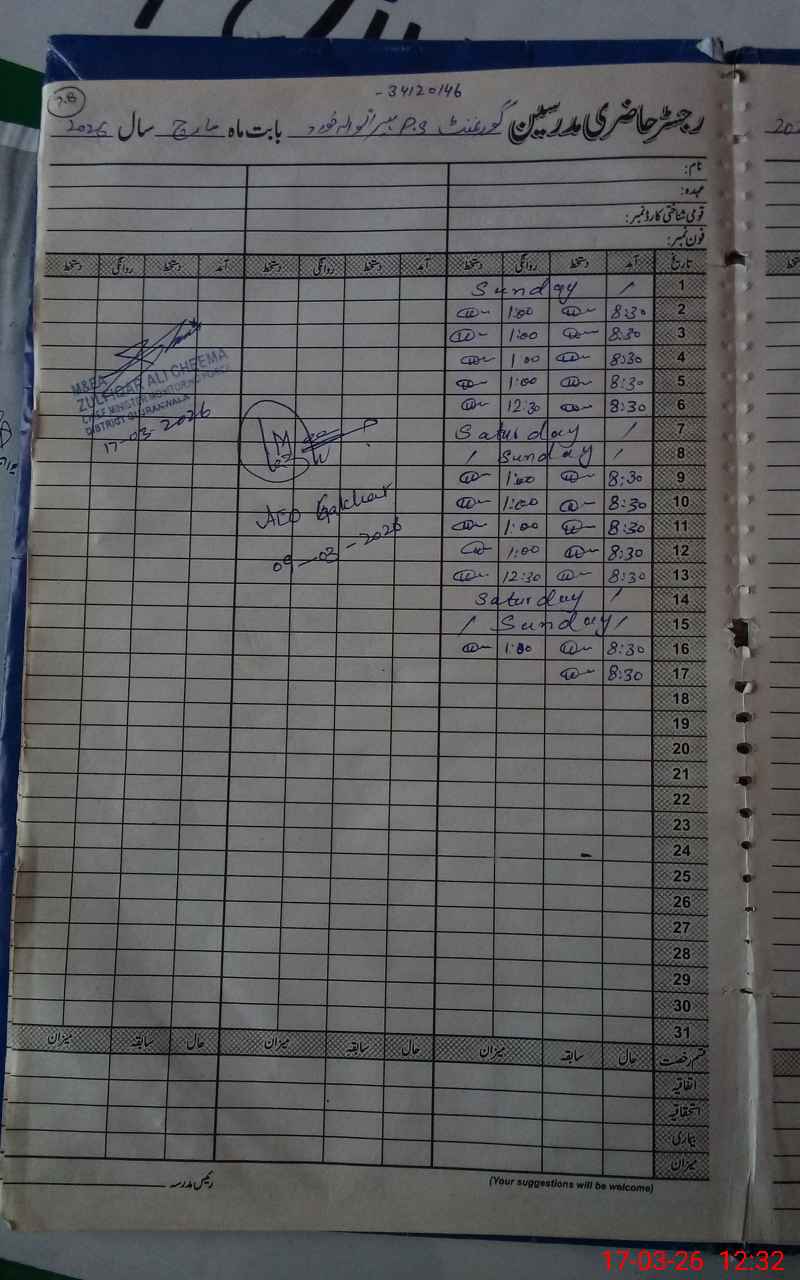 34120146-
رجسٹر حاضری مدرسین گورنمنٹ P.S بابت ماہ مارچ سال 2026
نام:
عہدہ:
قومی شناختی کارڈ نمبر:
فون نمبر:
تاریخ آمد دستخط روانگی دستخط آمد دستخط روانگی دستخط آمد دستخط روانگی دستخط
1 Sunday
2 8:30 1:00
3 8:30 1:00
4 8:30 1:00
5 8:30 1:00
6 8:30 12:30
7 Saturday
8 Sunday
9 8:30 1:00
10 8:30 1:00
11 8:30 1:00
12 8:30 1:00
13 8:30 12:30
14 Saturday
15 Sunday
16 8:30 1:00
17 8:30
18
19
20
21
22
23
24
25
26
27
28
29
30
31
M&EA
ZULFIQAR ALI CHEEMA
CHIEF MINISTER MONITORING FORCE
DISTRICT GUJRANWALA
17-03-2026
AEO Gakhar
09-03-2026
قسم رخصت حال سابقہ میزان حال سابقہ میزان حال سابقہ میزان
اتفاقیہ
استحقاقیہ
بیماری
میزان
(Your suggestions will be welcome)
رئیس مدرسہ
17-03-26 12:32